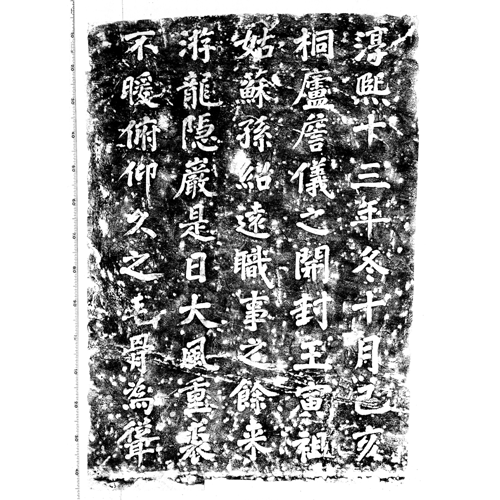 淳熙十三年冬十月己亥
桐廬詹儀之開封王寅祖
姑蘇孫紹遠職事之餘来
游龍隐巖是日大風重裘
不暖俯仰久之毛骨為聳